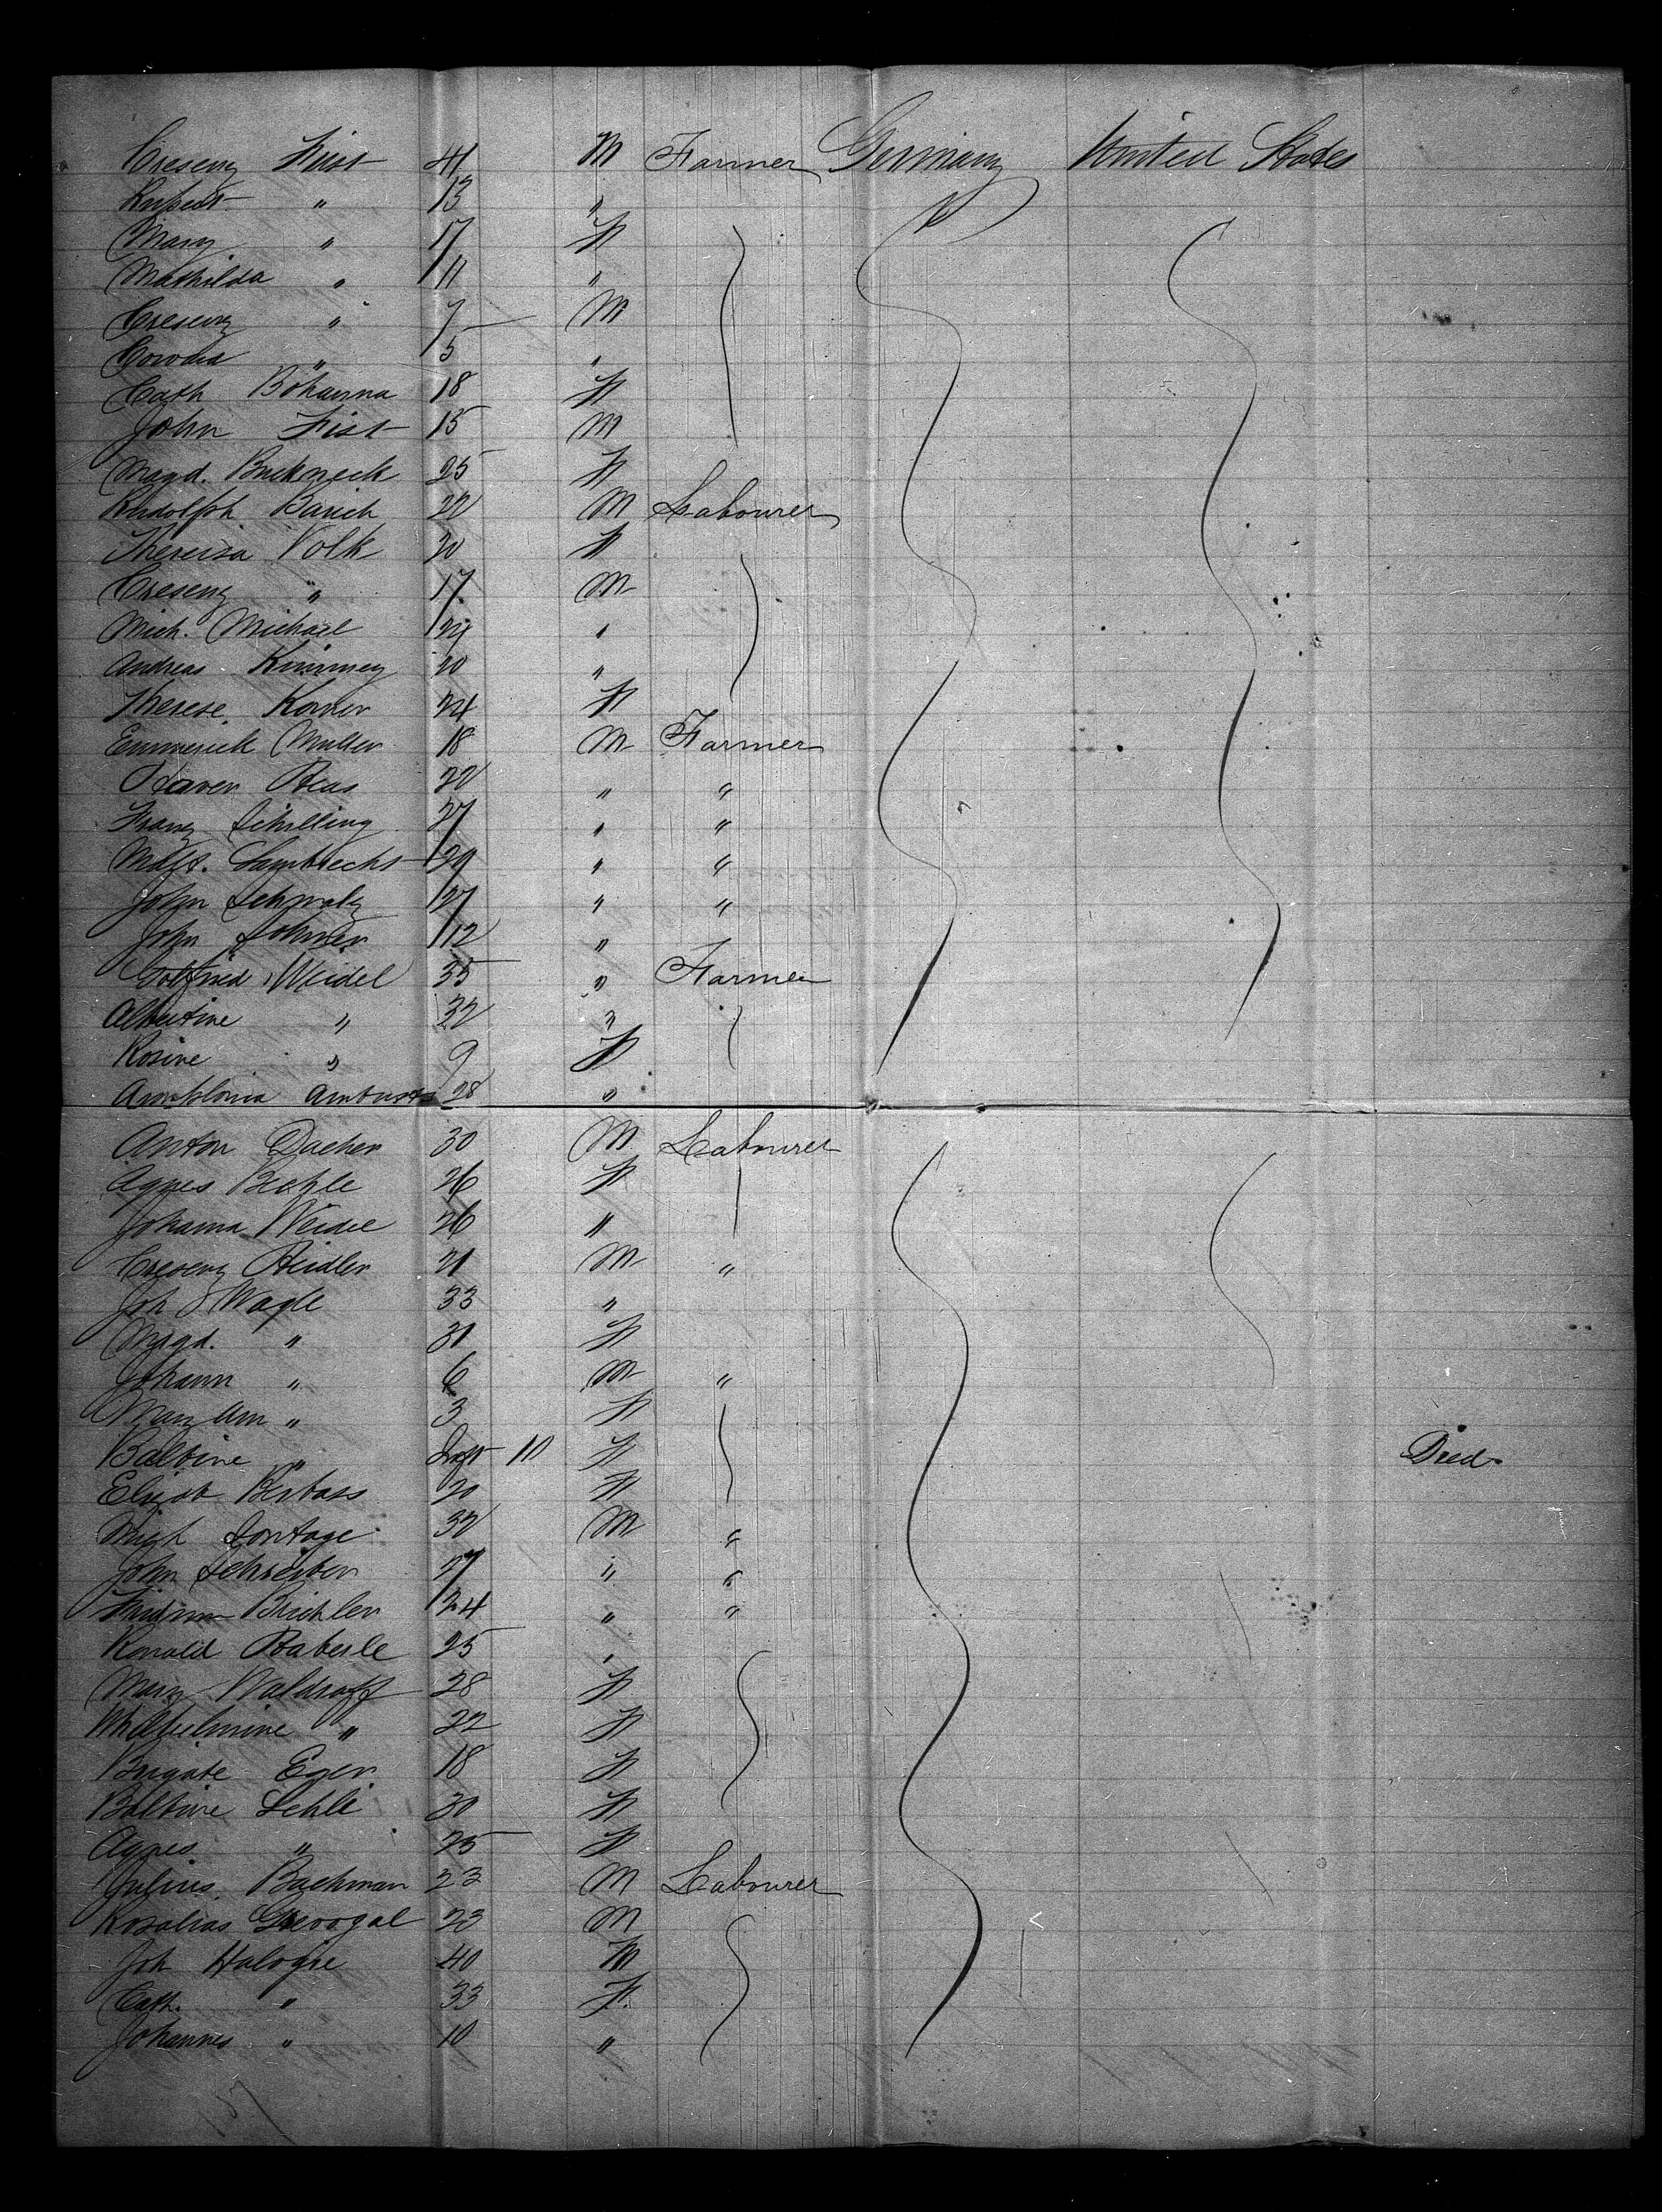 Cresenz Fist 41 M Farmer Germany United States
Rupert " 13 "
Mary " 17 F
Mathilda " 11 "
Cresenz " 7 M
" 5 "
Cath Böhanna 18 F
John Fist 15 M
Magd. Buckneck 25 F
Rudolph Barich 22 M Labourer
Theresa Volk 20 F
Cresenz " 17 M
Mich. Michael 24 "
Andreas Kimmey 20 "
Therese Korner 24 F
Emmerick Muller 18 M Farmer
Xaver 22 " "
Franz Schilling 27 " "
Lambrecht 29 " "
John Schmalz 27 " "
John Sohmer 12 "
Gottfried Weidel 35 " Farmer
Albertine " 32 "
Rosine " 9 F
28 "
Anton Dacher 30 M Labourer
Agnes Bechle 26 F
Johanna Weidel 26 "
Cresenz Reidler 21 M "
Joh Wagle 33 "
Magd. " 31 F
Johann " 6 M "
Mary Ann " 3 F
Balbine " Inft 10 F Died
Elizab Berbass 20 F
Mich Sontage 32 M "
John Schreiber 27 " "
Buchler 24 " "
Konald Haberle 25 "
Mary Waldraff 28 F
Whilhelmine " 22 F
Brigate Eger 18 F
Balbine Sehle 30 F
Agnes " 25 F
Julius Bachman 23 M Labourer
Rosalias 23 M
Joh Halogie 40 M
Cath. " 33 F
Johannes " 10 "